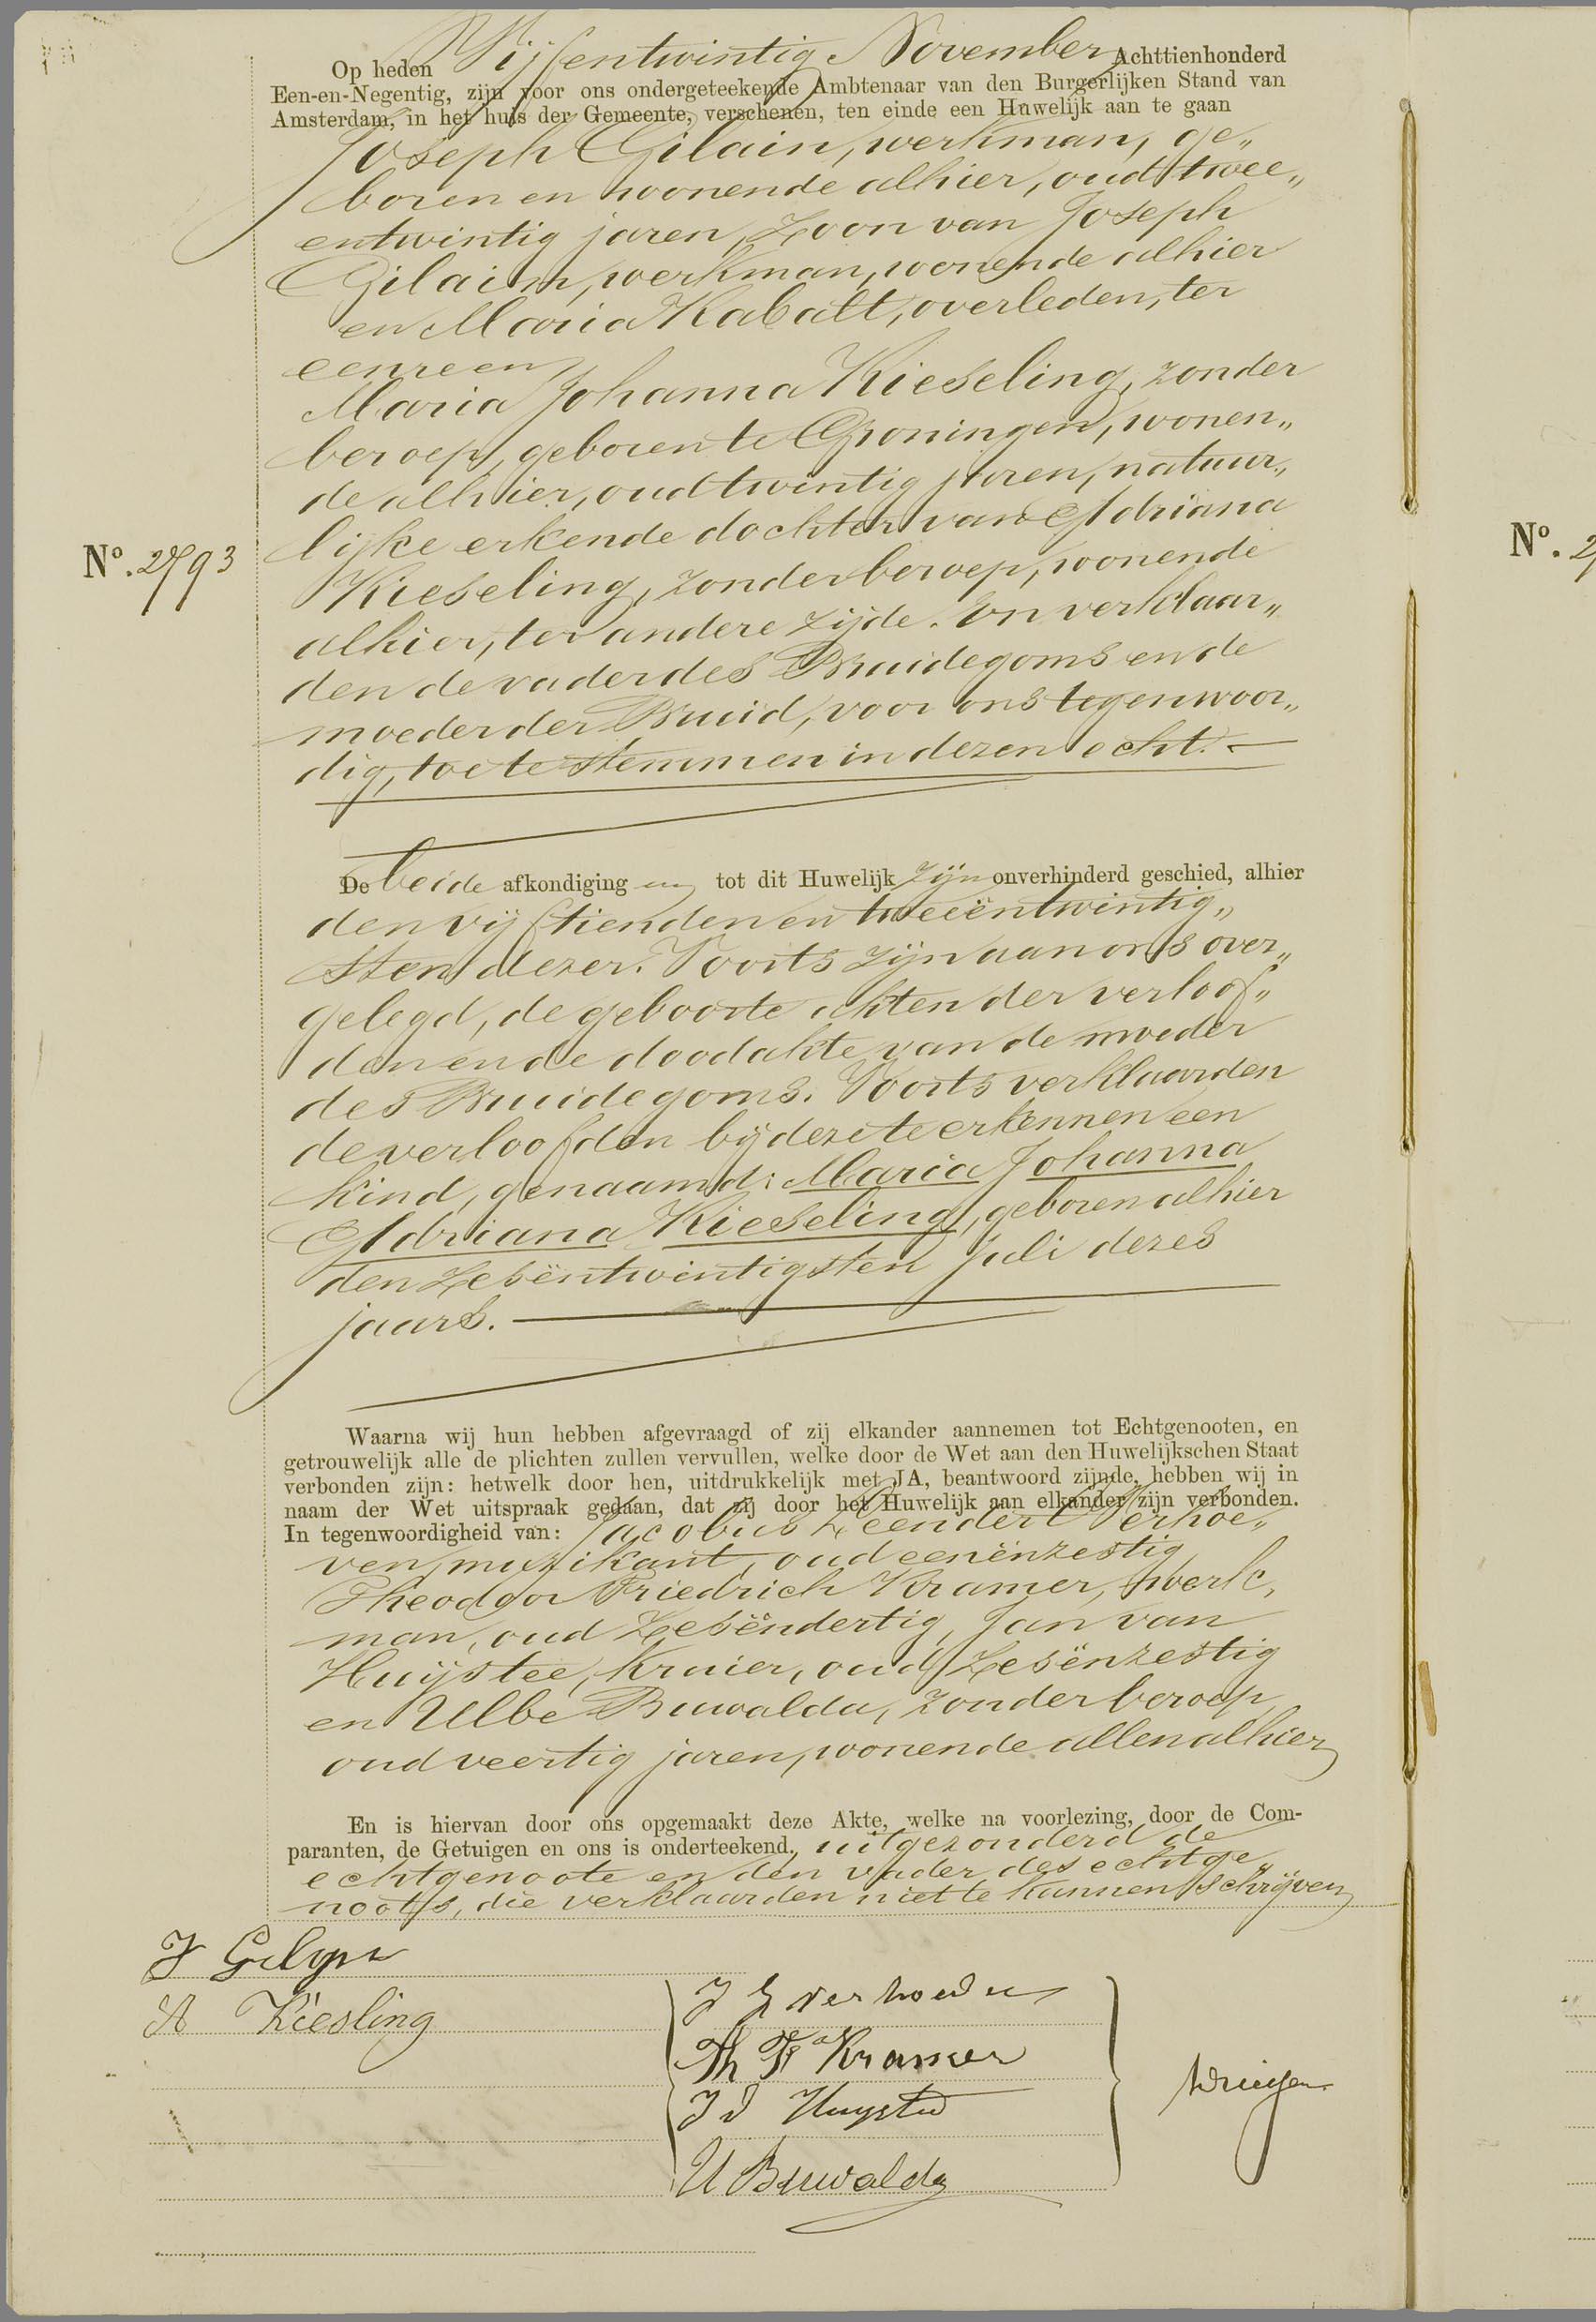 Op heden Vijfentwintig November Achttienhonderd
Een-en-Negentig, zijn voor ons ondergeteekende Ambtenaar van den Burgerlijken Stand van
Amsterdam, in het huis der Gemeente, verschenen, ten einde een Huwelijk aan te gaan
Joseph Gilain, werkman, ge„
boren en wonende alhier, oud twee„
entwintig jaren, Zoon van Joseph
Gilain, werkman, wonende alhier
en Maria Kabalt, overleden, ter
eenre en
Maria Johanna Kieseling, zonder
beroep, geboren te Groningen, wonen„
de alhier, oud twintig jaren, natuur„
lijke erkende dochter van Adriana
Nº. 2793
Kieseling, zonder beroep, wonende
alhier, ter andere zijde. En verklaar„
den de vader des Bruidegoms en de
moeder der Bruid, voor ons tegenwoor„
dig, toe te stemmen in dezen echt.
De beide afkondiging en tot dit Huwelijk zijn onverhinderd geschied, alhier
den vijftienden en tweeëntwintig„
sten dezer. Voorts zijn aan ons over„
gelegd, de geboorte akten der verloof„
den en de doodakte van de moeder
des Bruidegoms. Voorts verklaarden
de verloofden bij deze te erkennen een
kind, genaamd: Maria Johanna
Adriana Kieseling, geboren alhier
den Zesëntwintigsten Juli dezes
jaars.
Waarna wij hun hebben afgevraagd of zij elkander aannemen tot Echtgenooten, en
getrouwelijk alle de plichten zullen vervullen, welke door de Wet aan den Huwelijkschen Staat
verbonden zijn: hetwelk door hen, uitdrukkelijk met JA, beantwoord zijnde, hebben wij in
naam der Wet uitspraak gedaan, dat zij door het Huwelijk aan elkander zijn verbonden.
In tegenwoordigheid van: Jacobus Leendert Verhoe„
ven, muzikant, oud eenënzestig,
Theodoor Friedrich Kramer, werk„
man, oud Zesëndertig, Jan van
Huijstee, Kruier, oud Zesënzestig
en Ulbe Buwalda, zonder beroep,
oud veertig jaren, wonende allen alhier
En is hiervan door ons opgemaakt deze Akte, welke na voorlezing, door de Com-
paranten, de Getuigen en ons is onderteekend, uitgezonderd de
echtgenoote en den vader des echtge„
noots, die verklaarden niet te kunnen schrijven
J Gilyn
A Kiesling
J L Verhoeven
Th Fr Kramer
J V Huystee
U Buwalda